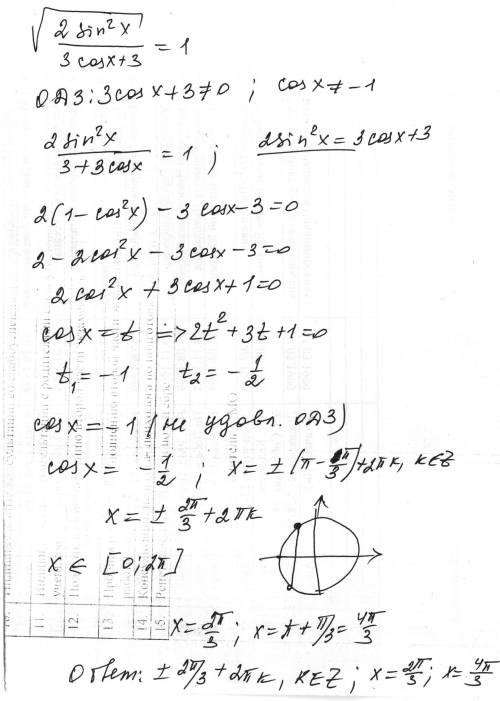 √(2 sin²x / (3 cosx+3)) = 1
ОДЗ: 3cosx+3≠0 ; cosx≠-1
2sin²x / (3+3cosx) = 1 ; 2sin²x = 3cosx+3
2(1-cos²x) - 3 cosx-3=0
2-2cos²x - 3cosx-3=0
2cos²x + 3cosx+1=0
cosx = t => 2t²+3t+1=0
t₁ = -1 t₂ = -1/2
cosx = -1 (не удовл. ОДЗ)
cosx = -1/2 ; x = ±(π-π/3)+2πk, k∈Z
x = ± 2π/3 + 2πk
x ∈ [0; 2π]
11.
12.
13.
14.
15.
x = 2π/3 ; x = π + π/3 = 4π/3
Ответ: ± 2π/3 + 2πk, k∈Z ; x = 2π/3 ; x = 4π/3